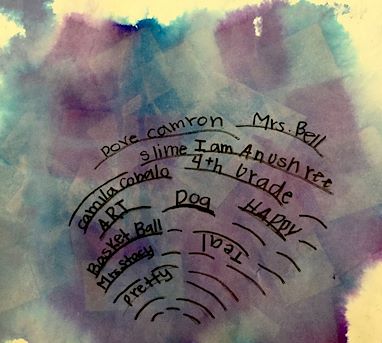 Dove camron
Mrs. Bell
slime I am Anushree
camila cobalo
4th Grade
ART
Dog
HAPPY
Basket Ball
Teal
Mrs. Stacy
pretty